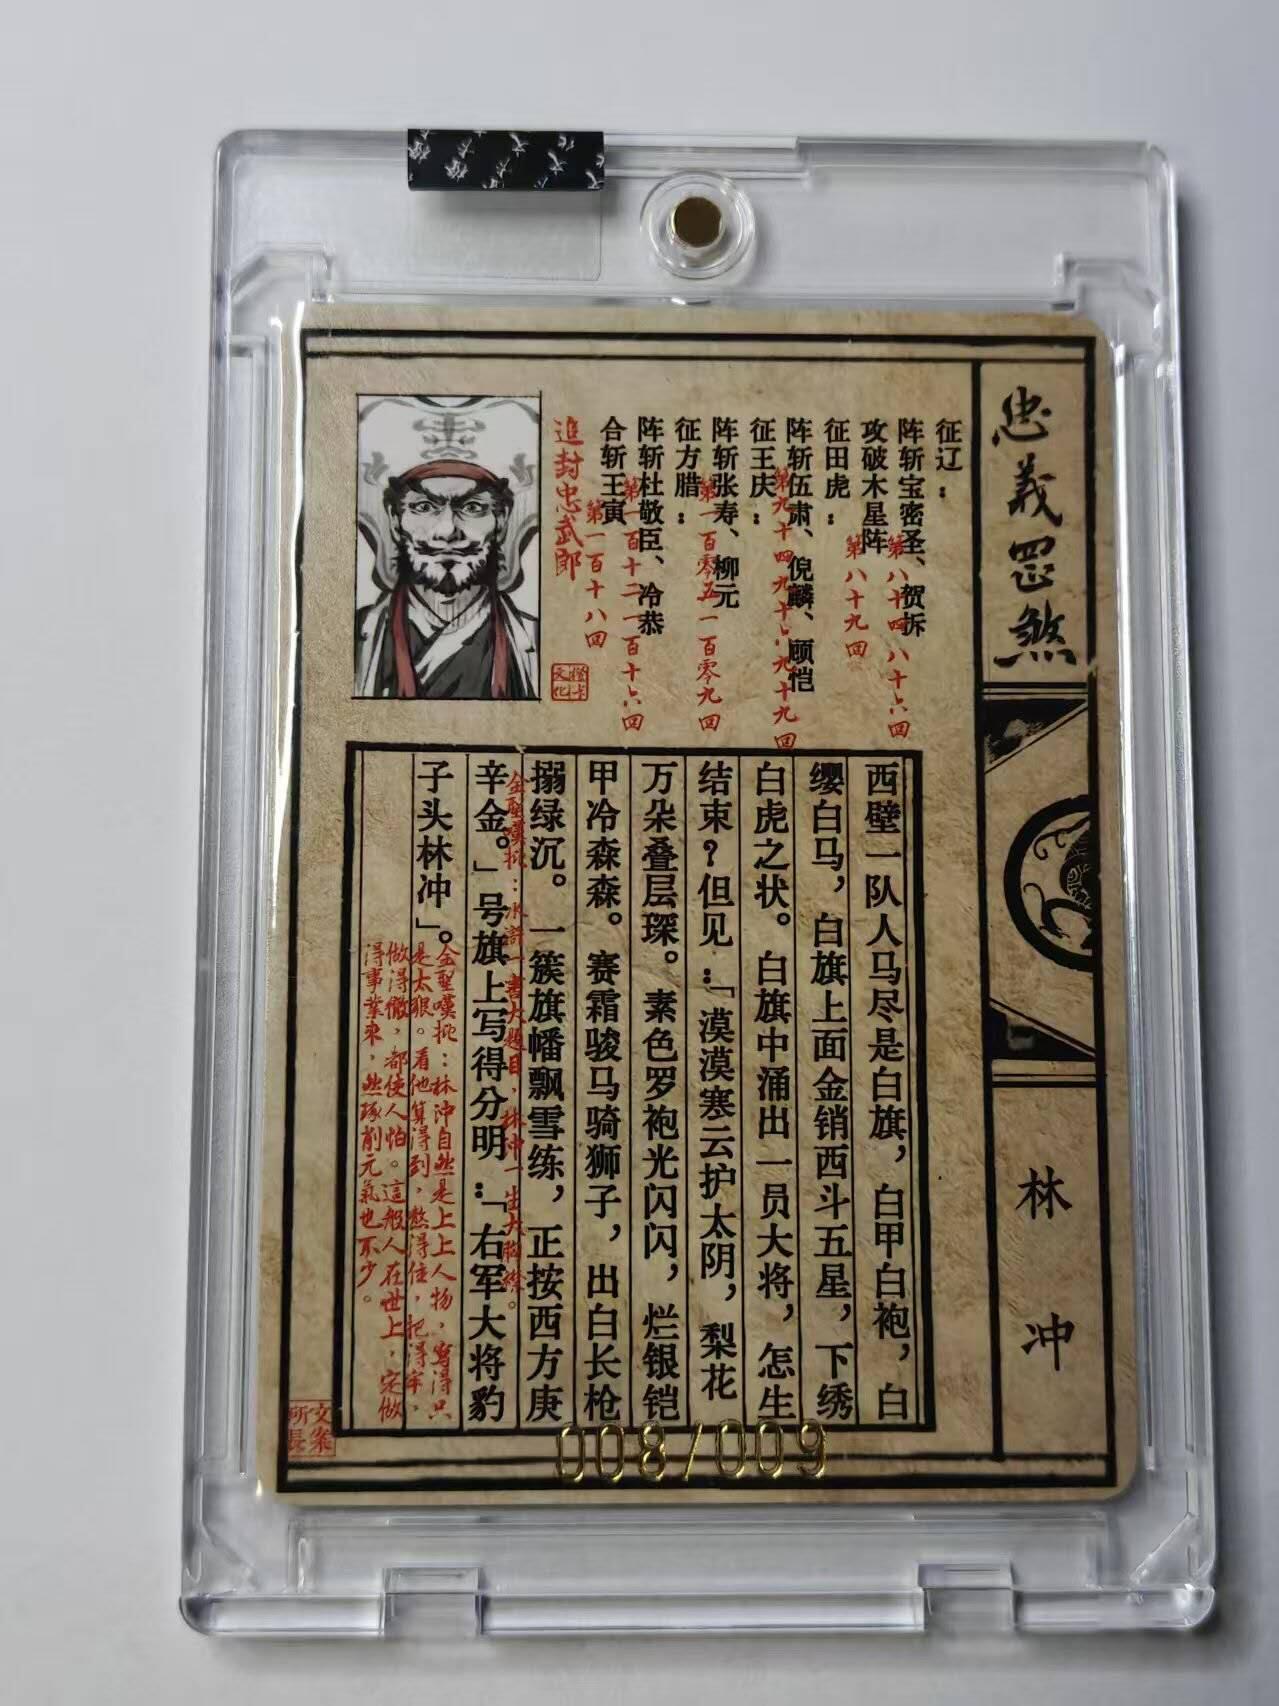 忠義罡煞
林冲
征辽：
阵斩宝密圣、贺拆
第八十四 八十六回
攻破木星阵
第八十九回
征田虎：
阵斩伍肃、倪麟、顾恺
第九十四 九十八 九十九回
征王庆：
阵斩张寿、柳元
第一百零五 一百零九回
征方腊：
阵斩杜敬臣、冷恭
第一百十二 一百十六回
合斩王寅
第一百十八回
追封忠武郎
橙卡文化
西壁一队人马尽是白旗，白甲白袍，白
缨白马，白旗上面金销西斗五星，下绣
白虎之状。白旗中涌出一员大将，怎生
结束？但见：「漠漠寒云护太阴，梨花
万朵叠层琛。素色罗袍光闪闪，烂银铠
甲冷森森。赛霜骏马骑狮子，出白长枪
搦绿沉。一簇旗幡飘雪练，正按西方庚
辛金。」号旗上写得分明：「右军大将豹
子头林冲」。
金聖嘆批：水滸一書大題目，林冲一生大胸襟。
金聖嘆批：林沖自然是上上人物，寫得只
是太狠。看他算得到，熬得住，把得牢，
做得徹，都使人怕。這般人在世上，定做
得事業來，然琢削元氣也不少。
文案所長
008/009